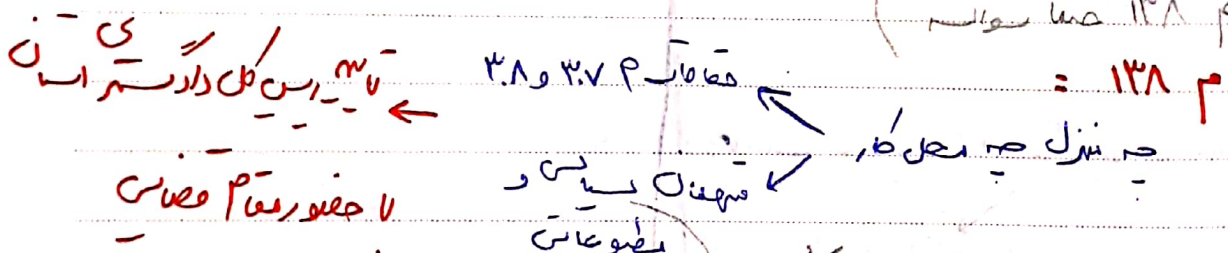 م ۱۳۸
م ۱۳۸ :
چه منزل چه محل کار
مقامات م ۳۰۷ و ۳۰۸
متهمان سیاسی و
مطبوعاتی
تأیید رییس کل دادگستری استان
با حضور مقام قضایی